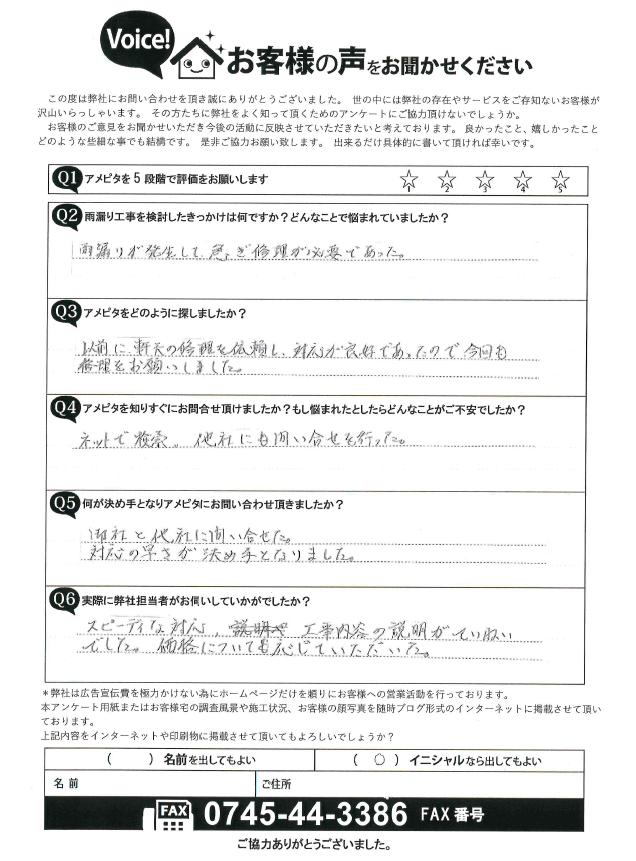 Voice!
お客様の声をお聞かせください
この度は弊社にお問い合わせを頂き誠にありがとうございました。 世の中には弊社の存在やサービスをご存知ないお客様が
沢山いらっしゃいます。 その方たちに弊社をよく知って頂くためのアンケートにご協力頂けないでしょうか。
お客様のご意見をお聞かせいただき今後の活動に反映させていただきたいと考えております。 良かったこと、嬉しかったこと
どのような些細な事でも結構です。 是非ご協力お願い致します。 出来るだけ具体的に書いて頂ければ幸いです。
Q1 アメピタを5段階で評価をお願いします
1 2 3 4 5
Q2 雨漏り工事を検討したきっかけは何ですか？どんなことで悩まれていましたか？
雨漏りが発生して、急ぎ修理が必要であった。
Q3 アメピタをどのように探しましたか？
以前に軒天の修理を依頼し、対応が良好であったので今回も
修理をお願いしました。
Q4 アメピタを知りすぐにお問合せ頂けましたか？もし悩まれたとしたらどんなことがご不安でしたか？
ネットで検索。 他社にも問い合せを行った。
Q5 何が決め手となりアメピタにお問い合わせ頂きましたか？
御社と他社に問い合せた。
対応の早さが決め手となりました。
Q6 実際に弊社担当者がお伺いしていかがでしたか？
スピーディな対応、 工事内容の説明がていねい
でした。 価格についても応じていただいた。
＊弊社は広告宣伝費を極力かけない為にホームページだけを頼りにお客様への営業活動を行っております。
本アンケート用紙またはお客様宅の調査風景や施工状況、お客様の顔写真を随時ブログ形式のインターネットに掲載させて頂い
ております。
上記内容をインターネットや印刷物に掲載させて頂いてもよろしいでしょうか？
（　　）名前を出してもよい （ ○ ）イニシャルなら出してもよい
名 前 ご住所
FAX 0745-44-3386 FAX 番号
ご協力ありがとうございました。